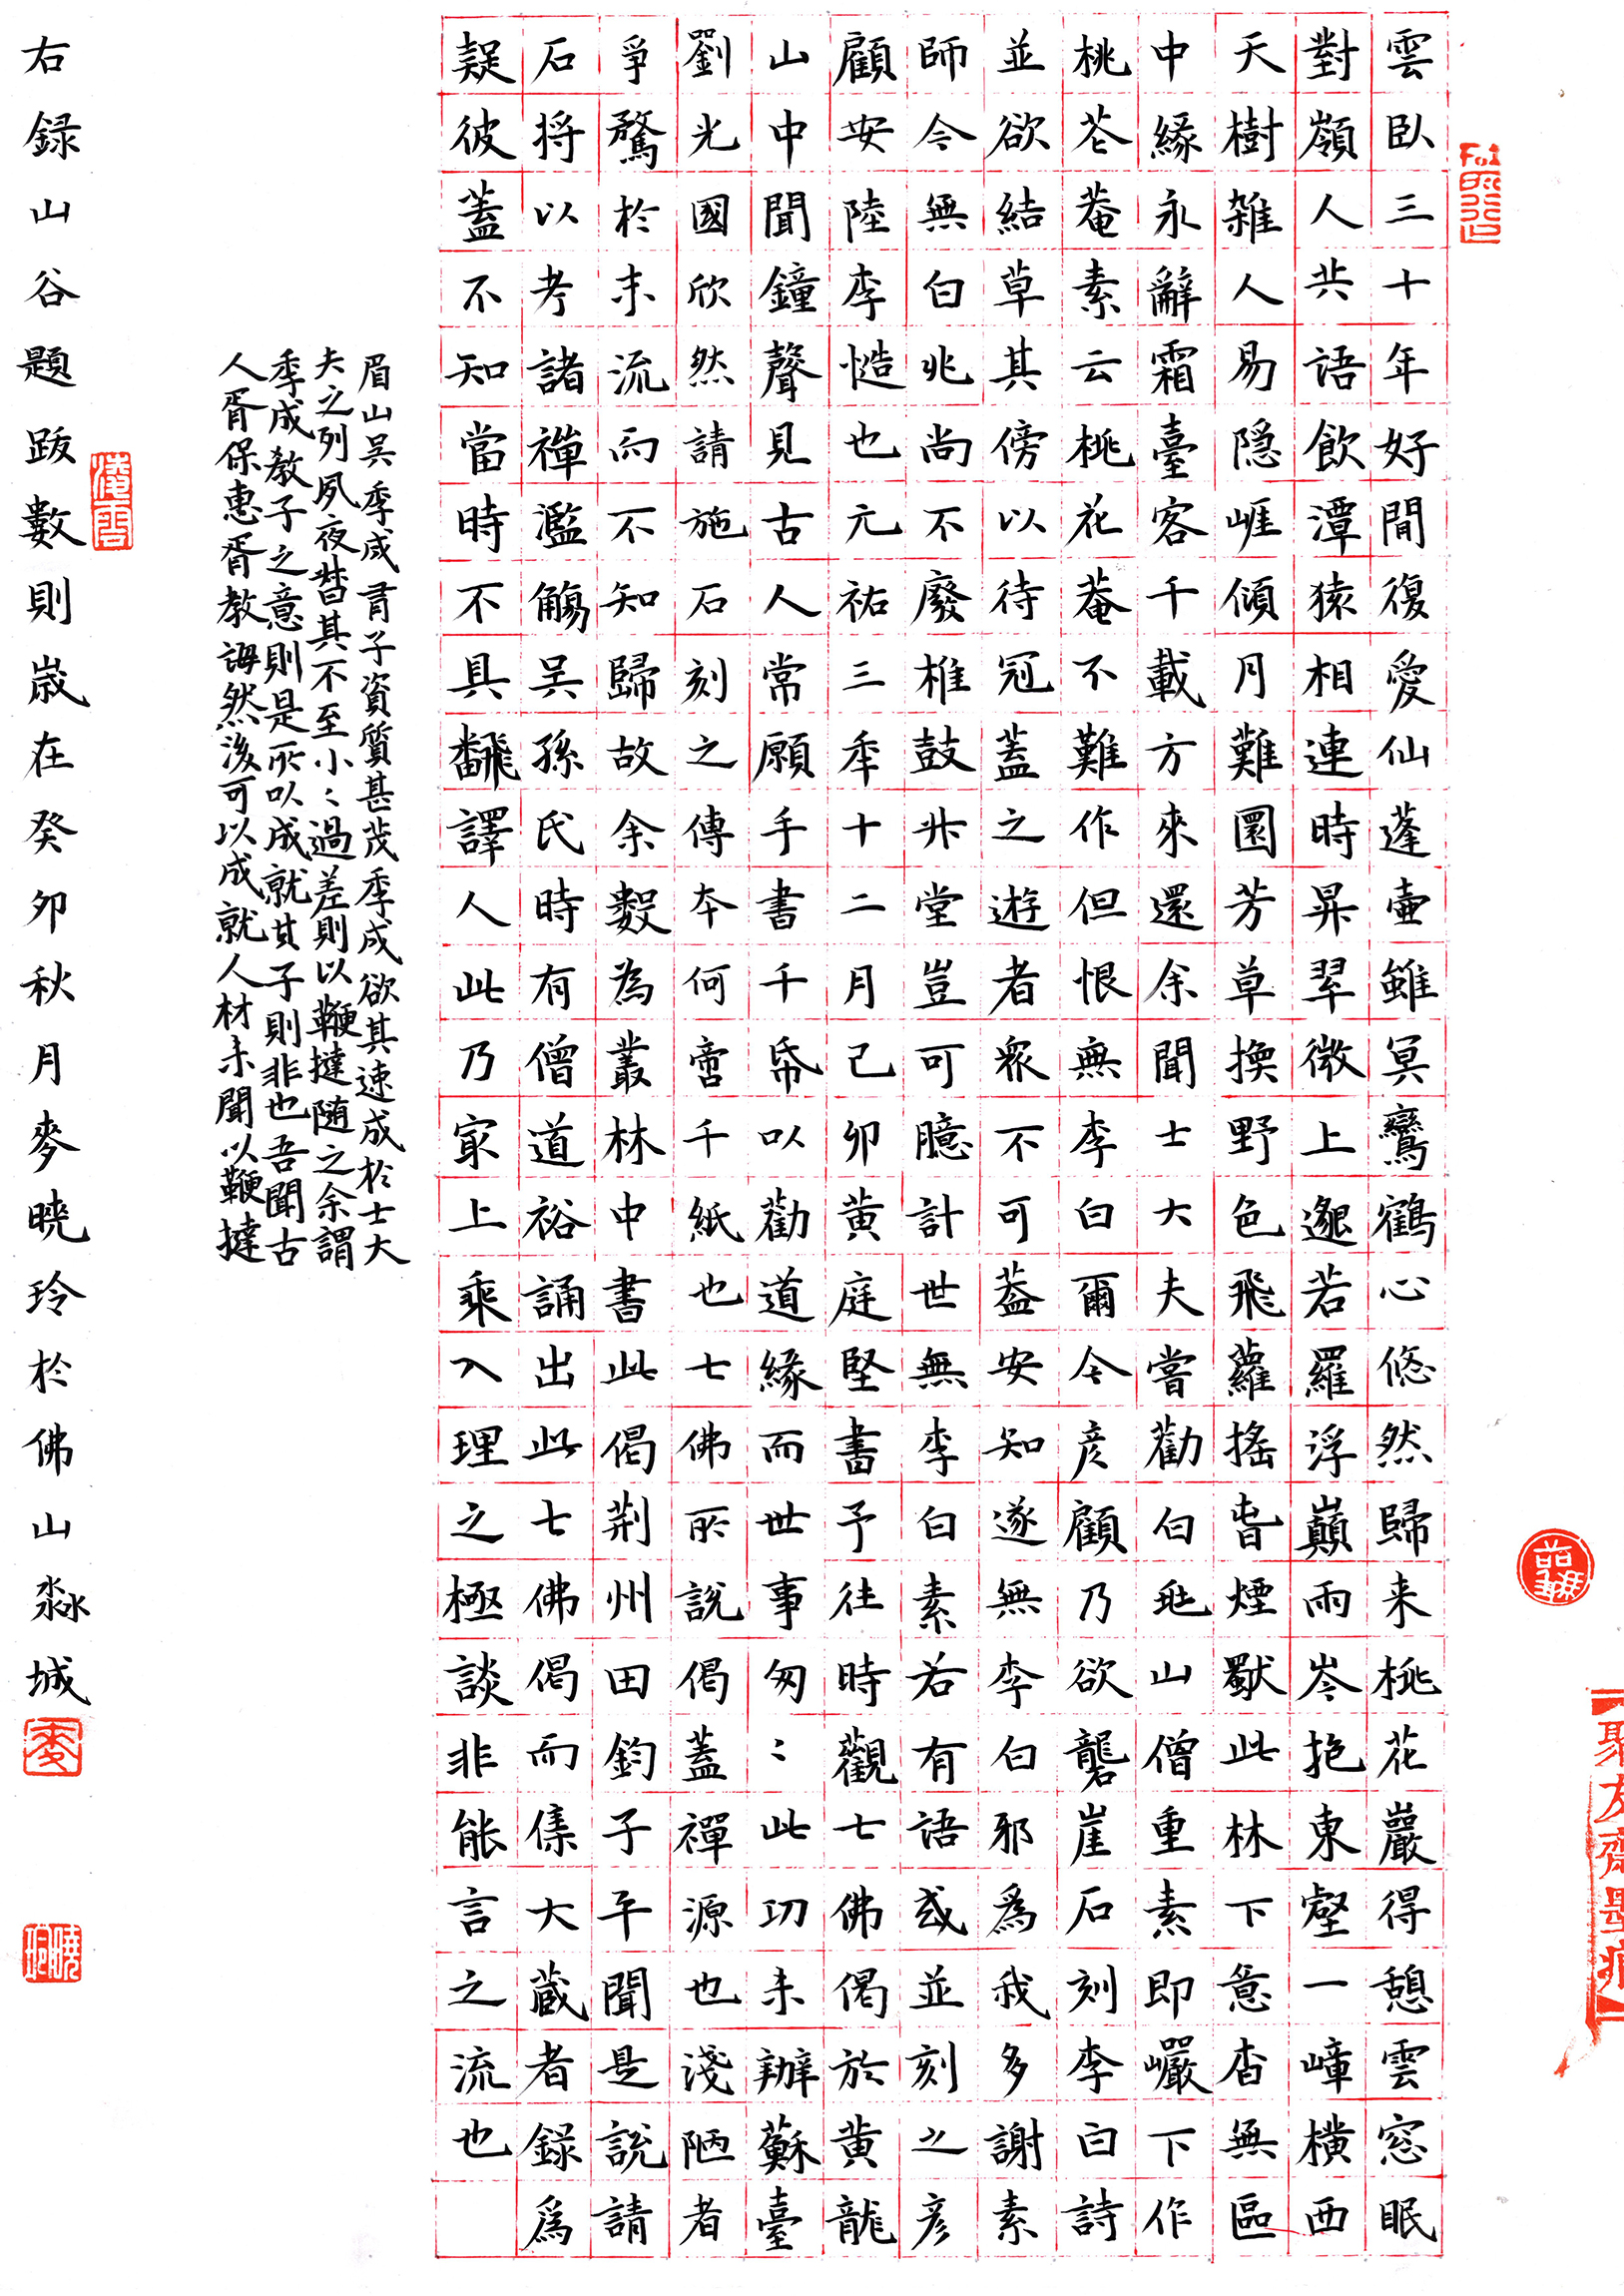 雲臥三十年好閒復愛仙蓬壺雖冥鸞鶴心悠然歸来桃花巖得憩雲窓眠
對嶺人共語飲潭猿相連時昇翠微上邈若羅浮巔兩岑抱東壑一嶂橫西
天樹雜人易隠崕傾月難圎芳草換野色飛蘿搖春煙獸此林下意杳無區
中緣永辭霜臺客千載方來還余聞士大夫嘗勸白兆山僧重素即巖下作
桃苍菴素云桃花菴不難作但恨無李白爾今彥顧乃欲礱崖石刻李白詩
並欲結草其傍以待冠蓋之遊者衆不可葢安知遂無李白邪爲我多謝素
師今無白兆尚不廢椎鼓升堂豈可臆計世無李白素若有語或並刻之彥
顧安陸李慥也元祐三秊十二月己卯黃庭堅書予往時觀七佛偈於黃龍
山中聞鐘聲見古人常願手書千帋以勸道緣而世事匆匆此功未辦蘇臺
劉光國欣然請施石刻之傳夲何啻千紙也七佛所說偈蓋禪源也淺陋者
爭騖於末流而不知歸故余數為叢林中書此偈荆州田鈞子平聞是說請
石将以考諸禪濫觴吴孫氏時有僧道裕誦出此七佛偈而集大蔵者録爲
疑彼蓋不知當時不具飜譯人此乃冣上乘入理之極談非能言之流也
眉山吴季成有子資質甚茂季成欲其速成於士大
夫之列夙夜督其不至小〻過差則以鞭撻随之余謂
季成教子之意則是所以成就其子則非也吾聞古
人胥保惠胥教誨然後可以成就人材未聞以鞭撻
右録山谷題跋數則歲在癸卯秋月麥曉玲於佛山淼城